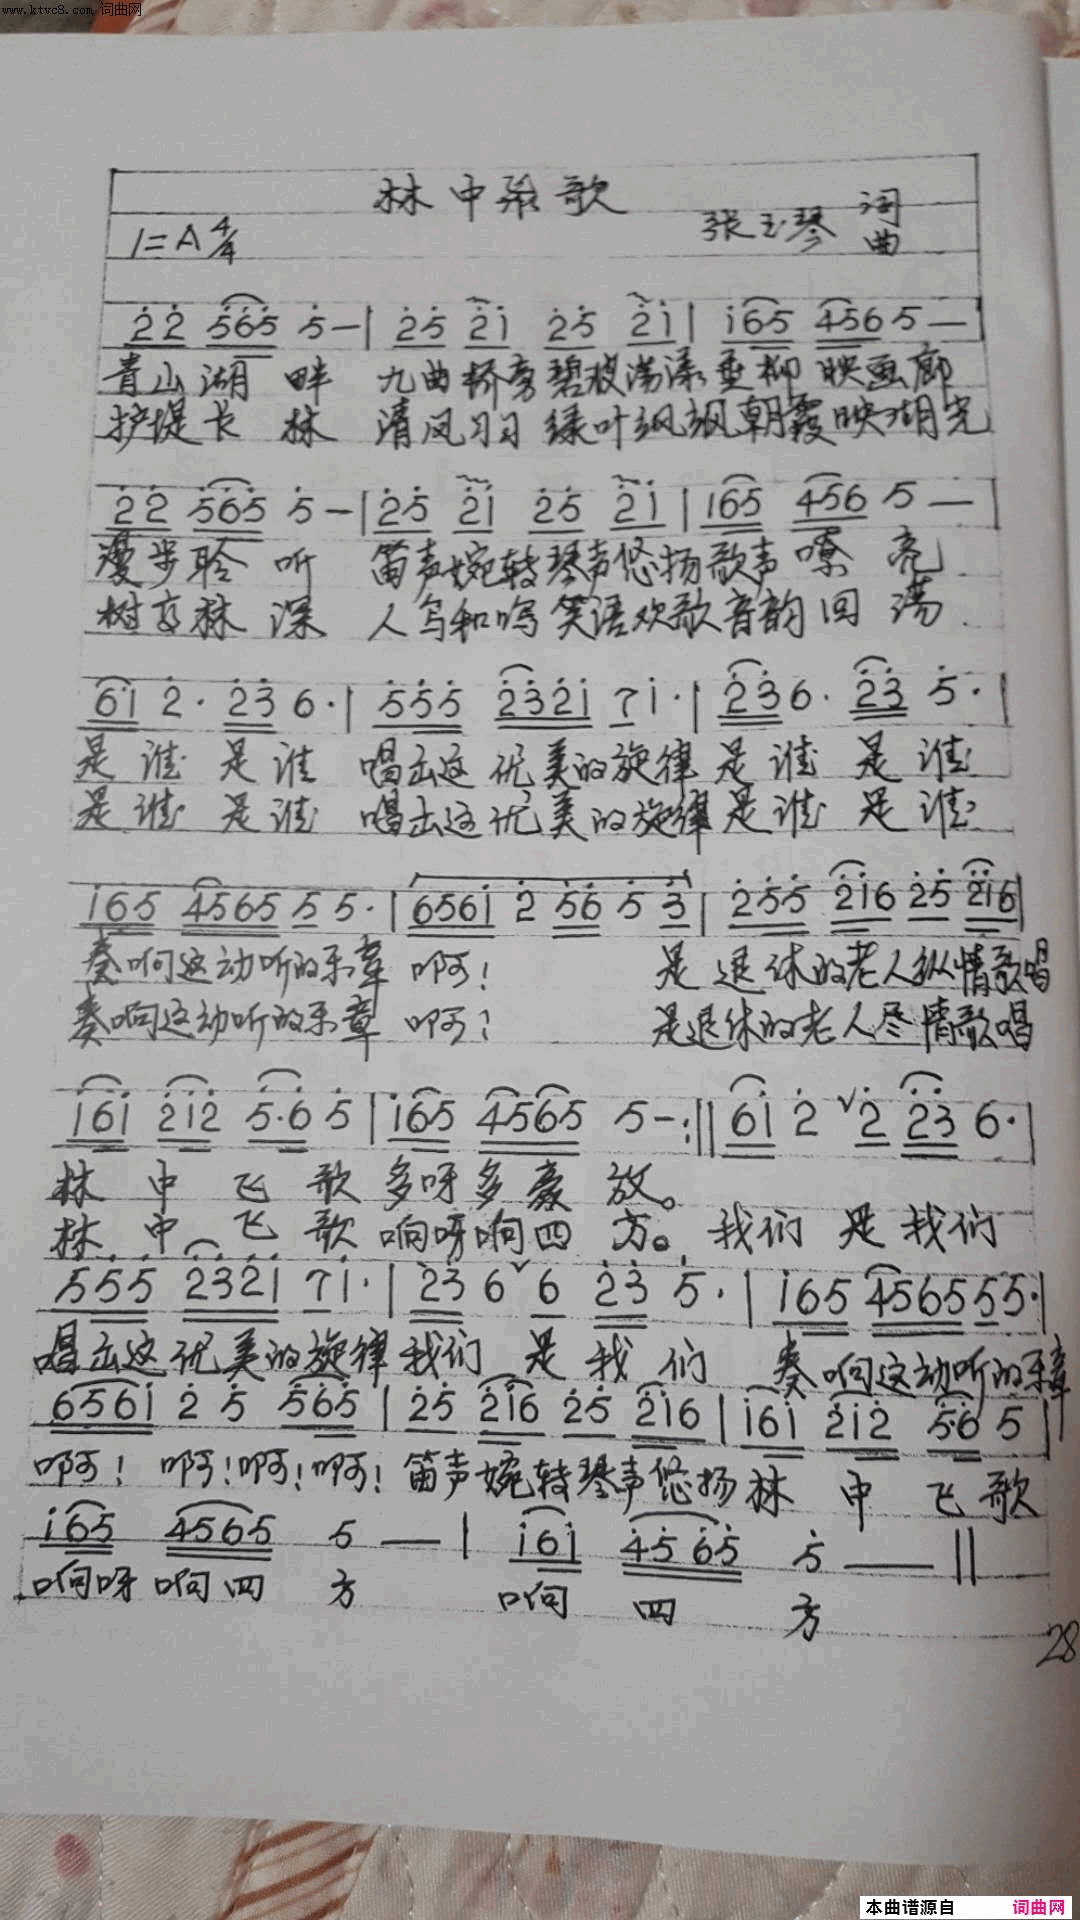 www.ktvc8.com 词曲网
林中飞歌
1=A 4/4 张玉琴 词
曲
2̇2̇ 5̇6̇5̇ 5̇ — | 2̇5̇ 2̇i 2̇5̇ 2̇i | i65 4565 —
青山湖畔 九曲桥旁碧波荡漾垂柳映画廊
护堤长林 清风习习绿叶飒飒朝霞映湖光
2̇2̇ 5̇6̇5̇ 5̇ — | 2̇5̇ 2̇i 2̇5̇ 2̇i | 165 456 5 —
漫步聆听 笛声婉转琴声悠扬歌声嘹亮
树高林深 人鸟和鸣笑语欢歌音韵回荡
6i 2̇· 2̇3̇ 6· | 5̇5̇5̇ 2̇3̇2̇i 7i· | 2̇3̇6· 2̇3̇ 5̇· |
是谁是谁 唱出这优美的旋律是谁是谁
是谁是谁 唱出这优美的旋律是谁是谁
i65 4565 5 5· | 656i 2̇ 5̇6̇ 5̇ 3̇ | 2̇5̇5̇ 2̇i6 2̇5̇ 2̇i6 |
奏响这动听的乐章 啊! 是退休的老人纵情歌唱
奏响这动听的乐章 啊! 是退休的老人尽情歌唱
i6i 2̇i2̇ 5̇·6̇ 5̇ | i65 4565 5 — :|| 6i 2̇ ∨2̇ 2̇3̇ 6· |
林中飞歌多呀多豪放。
林中飞歌响呀响四方。我们是我们
5̇5̇5̇ 2̇3̇2̇i 7i· | 2̇3̇ 6∨6 2̇3̇ 5̇· | i65 4565 5 5· |
唱出这优美的旋律我们是我们 奏响这动听的乐章
656i 2̇ 5̇ 5̇6̇5̇ | 2̇5̇ 2̇i6 2̇5̇ 2̇i6 | i6i 2̇i2̇ 5̇6̇ 5 |
啊! 啊!啊!啊! 笛声婉转琴声悠扬林中飞歌
i65 4565 5 — | i6i 4̇5̇6̇5̇ 5̇ — ||
响呀响四方 响四方
28
本曲谱源自 词曲网